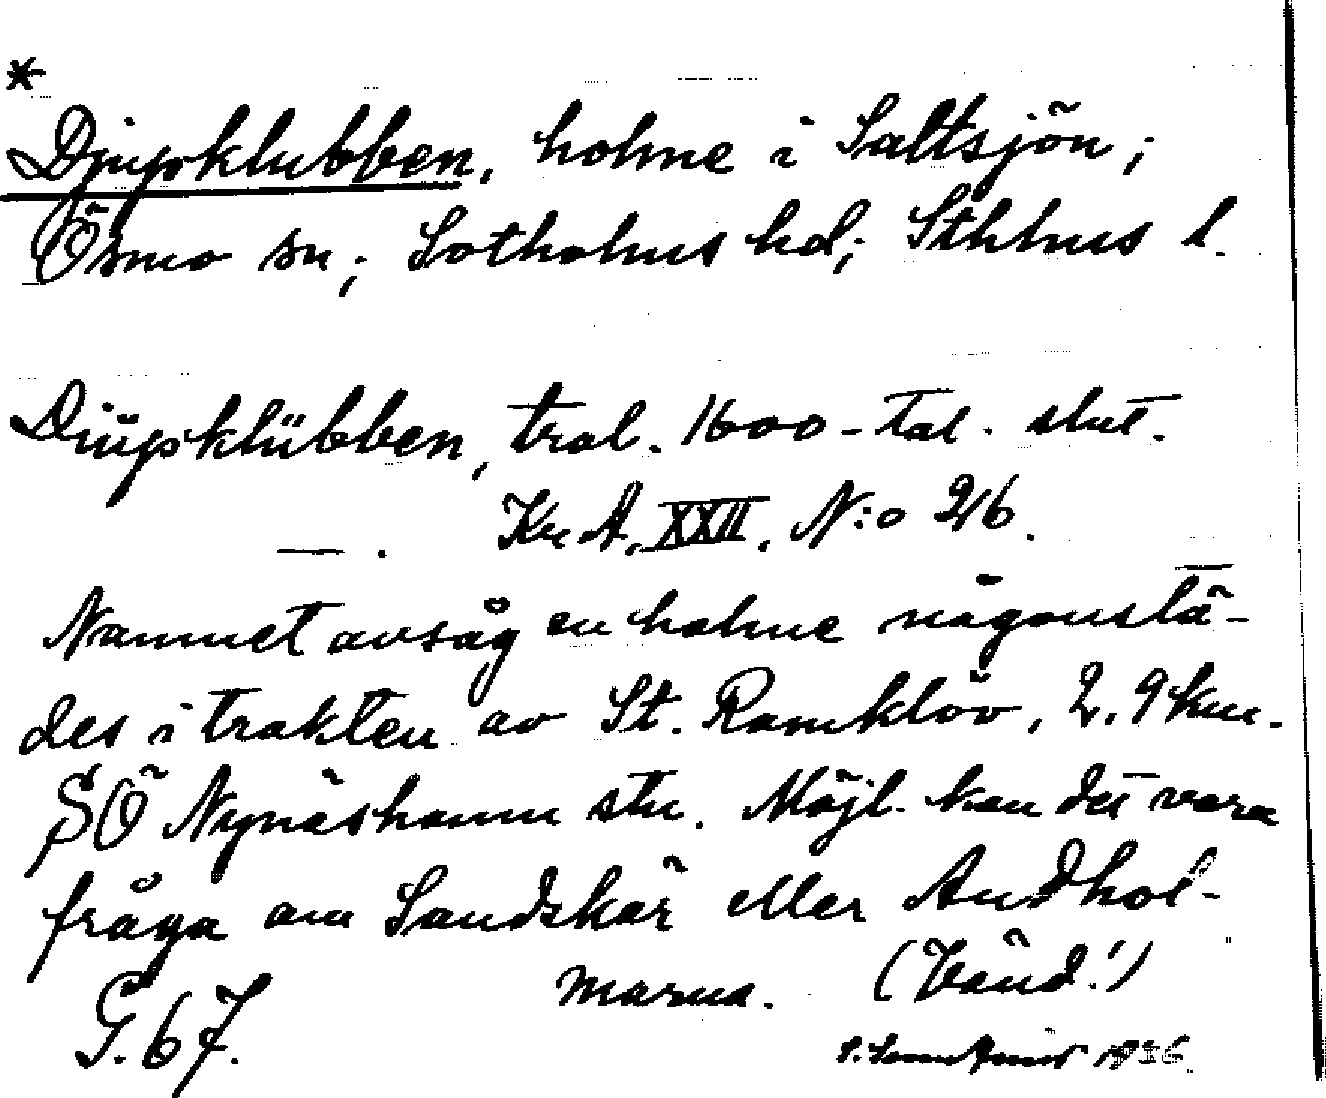 *
Djupklubben, holme i Saltsjön;
Ösmo sn; Sotholms hd; Sthlms l.
Diüpklübben, trol. 1600-tal. slut.
—. Kr A, XXII, N:o 26.
Namnet avsåg en holme någonstä-
des i trakten av St. Ramklöv, 2.9 km.
SÖ Nynäshamn stn. Möjl. kan det vara
fråga om Sandskär eller Andhol-
marna. (Vänd!)
G. 67.
1936